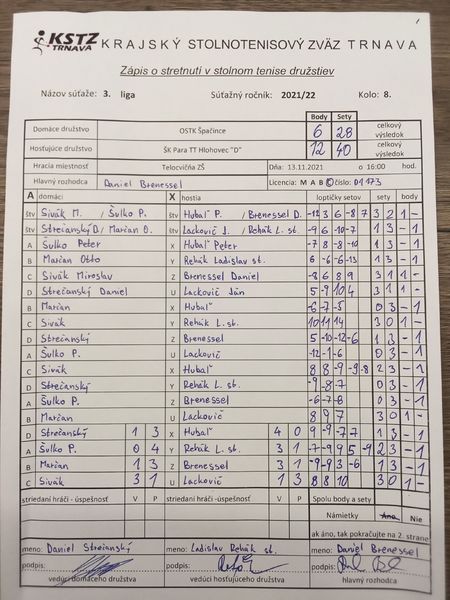 KSTZ TRNAVA KRAJSKÝ STOLNOTENISOVÝ ZVÄZ TRNAVA
Zápis o stretnutí v stolnom tenise družstiev
Názov súťaže: 3. liga Súťažný ročník: 2021/22 Kolo: 8.
Body Sety
Domáce družstvo OSTK Špačince 6 28 celkový výsledok
Hosťujúce družstvo ŠK Para TT Hlohovec "D" 12 40 celkový výsledok
Hracia miestnosť Telocvičňa ZŠ Dňa: 13.11.2021 o 16:00 hod.
Hlavný rozhodca Daniel Brenessel Licencia: M A B C číslo: 01173
A domáci X hostia loptičky setov sety body
štv Sivák M. / Šulko P. štv Hubaľ P. / Brenessel D. -12 3 6 -8 7 3 2 1 -
štv Strečanský D. / Marčan O. štv Lackovič J. / Rehák L. st. -9 6 -10 -7 1 3 - 1
A Šulko Peter X Hubaľ Peter -7 8 -8 -10 1 3 - 1
B Marčan Otto Y Rehák Ladislav st. 6 -6 -6 -13 1 3 - 1
C Sivák Miroslav Z Brenessel Daniel -8 6 8 9 3 1 1 -
D Strečanský Daniel U Lackovič Ján 5 -9 10 4 3 1 1 -
B Marčan X Hubaľ -6 -7 -5 0 3 - 1
C Sivák Y Rehák L. st. 10 11 14 3 0 1 -
D Strečanský Z Brenessel 5 -10 -12 -6 1 3 - 1
A Šulko P. U Lackovič -12 -1 -6 0 3 - 1
C Sivák X Hubaľ 8 8 -9 -9 -8 2 3 - 1
D Strečanský Y Rehák L. st. -9 -8 -7 0 3 - 1
A Šulko P. Z Brenessel -6 -7 -8 0 3 - 1
B Marčan U Lackovič 8 9 7 3 0 1 -
D Strečanský 1 3 X Hubaľ 4 0 -9 9 -7 -7 1 3 - 1
A Šulko P. 0 4 Y Rehák L. st. 3 1 -7 -9 9 5 -9 2 3 - 1
B Marčan 1 3 Z Brenessel 3 1 -9 -9 3 -6 1 3 - 1
C Sivák 3 1 U Lackovič 1 3 8 8 10 3 0 1 -
striedaní hráči - úspešnosť V P striedaní hráči - úspešnosť V P Spolu body a sety
Námietky Áno Nie
ak áno, tak pokračujte na 2. strane
meno: Daniel Strečanský meno: Ladislav Rehák st. meno: Daniel Brenessel
podpis: podpis: podpis:
vedúci domáceho družstva vedúci hosťujúceho družstva hlavný rozhodca